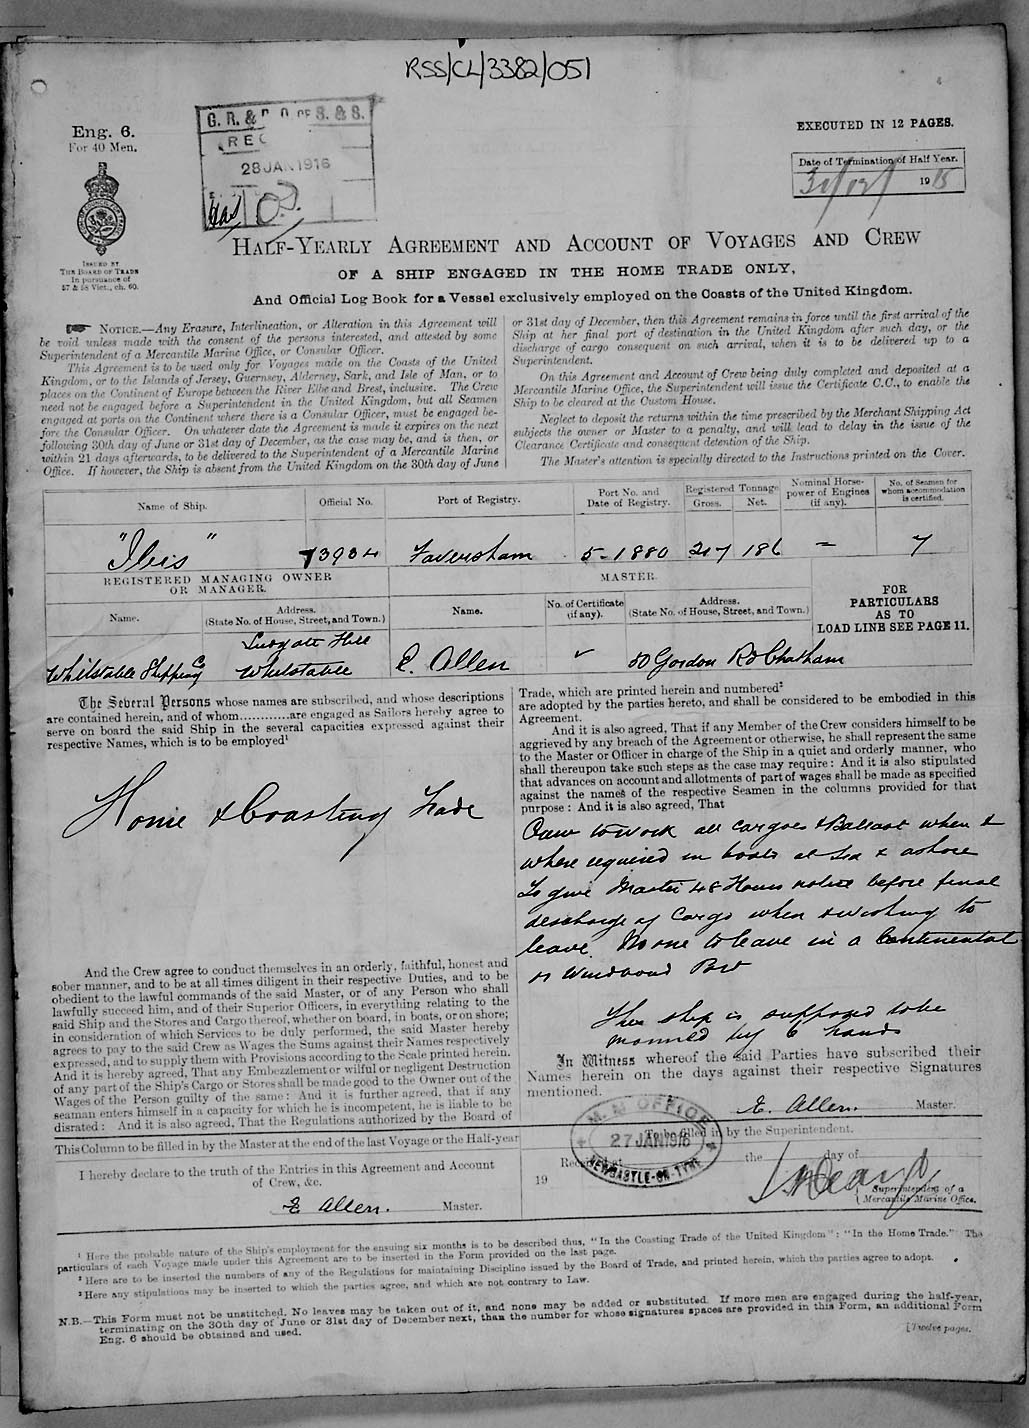 RSS/CL/3382/051
Eng. 6.
For 40 Men.
ISSUED BY
THE BOARD OF TRADE
In pursuance of
57 & 58 Vict., ch. 60.
G. R. & OF S. & S.
REC
28 JAN 1916
EXECUTED IN 12 PAGES.
Date of Termination of Half Year.
31/12/ 1915
HALF-YEARLY AGREEMENT AND ACCOUNT OF VOYAGES AND CREW
OF A SHIP ENGAGED IN THE HOME TRADE ONLY,
And Official Log Book for a Vessel exclusively employed on the Coasts of the United Kingdom.
NOTICE.—Any Erasure, Interlineation, or Alteration in this Agreement will
be void unless made with the consent of the persons interested, and attested by some
Superintendent of a Mercantile Marine Office, or Consular Officer.
This Agreement is to be used only for Voyages made on the Coasts of the United
Kingdom, or to the Islands of Jersey, Guernsey, Alderney, Sark, and Isle of Man, or to
places on the Continent of Europe between the River Elbe and Brest, inclusive. The Crew
need not be engaged before a Superintendent in the United Kingdom, but all Seamen
engaged at ports on the Continent where there is a Consular Officer, must be engaged be-
fore the Consular Officer. On whatever date the Agreement is made it expires on the next
following 30th day of June or 31st day of December, as the case may be, and is then, or
within 21 days afterwards, to be delivered to the Superintendent of a Mercantile Marine
Office. If however, the Ship is absent from the United Kingdom on the 30th day of June
or 31st day of December, then this Agreement remains in force until the first arrival of the
Ship at her final port of destination in the United Kingdom after such day, or the
discharge of cargo consequent on such arrival, when it is to be delivered up to a
Superintendent.
On this Agreement and Account of Crew being duly completed and deposited at a
Mercantile Marine Office, the Superintendent will issue the Certificate C.C., to enable the
Ship to be cleared at the Custom House.
Neglect to deposit the returns within the time prescribed by the Merchant Shipping Act
subjects the owner or Master to a penalty, and will lead to delay in the issue of the
Clearance Certificate and consequent detention of the Ship.
The Master's attention is specially directed to the Instructions printed on the Cover.
Name of Ship. Official No. Port of Registry. Port No. and Date of Registry. Registered Tonnage Gross. Net. Nominal Horse-power of Engines (if any). No. of Seamen for whom accommodation is certified.
"Ibis" 73934 Faversham 5-1880 207 186 – 7
REGISTERED MANAGING OWNER OR MANAGER. MASTER.
Name. Address. (State No. of House, Street, and Town.) Name. No. of Certificate (if any). Address. (State No. of House, Street, and Town.)
FOR PARTICULARS AS TO LOAD LINE SEE PAGE 11.
Whitstable Shipping Co Ludgate Hill Whitstable E. Allen 50 Gordon Rd Chatham
The Several Persons whose names are subscribed, and whose descriptions
are contained herein, and of whom............are engaged as Sailors hereby agree to
serve on board the said Ship in the several capacities expressed against their
respective Names, which is to be employed¹
Home & Coasting Trade
And the Crew agree to conduct themselves in an orderly, faithful, honest and
sober manner, and to be at all times diligent in their respective Duties, and to be
obedient to the lawful commands of the said Master, or of any Person who shall
lawfully succeed him, and of their Superior Officers, in everything relating to the
said Ship and the Stores and Cargo thereof, whether on board, in boats, or on shore;
in consideration of which Services to be duly performed, the said Master hereby
agrees to pay to the said Crew as Wages the Sums against their Names respectively
expressed, and to supply them with Provisions according to the Scale printed herein.
And it is hereby agreed, That any Embezzlement or wilful or negligent Destruction
of any part of the Ship's Cargo or Stores shall be made good to the Owner out of the
Wages of the Person guilty of the same: And it is further agreed, that if any
seaman enters himself in a capacity for which he is incompetent, he is liable to be
disrated: And it is also agreed, That the Regulations authorized by the Board of
Trade, which are printed herein and numbered²
are adopted by the parties hereto, and shall be considered to be embodied in this
Agreement.
And it is also agreed, That if any Member of the Crew considers himself to be
aggrieved by any breach of the Agreement or otherwise, he shall represent the same
to the Master or Officer in charge of the Ship in a quiet and orderly manner, who
shall thereupon take such steps as the case may require: And it is also stipulated
that advances on account and allotments of part of wages shall be made as specified
against the names of the respective Seamen in the columns provided for that
purpose: And it is also agreed, That
Crew to work all cargoes & Ballast when &
where required in boats at sea & ashore
To give Master 48 Hours notice before final
discharge of Cargo when wishing to
leave. No one to leave in a Continental
or Windward Port
This ship is supposed to be
manned by 6 hands
In Witness whereof the said Parties have subscribed their
Names herein on the days against their respective Signatures
mentioned.
E. Allen. Master.
This Column to be filled in by the Master at the end of the last Voyage or the Half-year
I hereby declare to the truth of the Entries in this Agreement and Account
of Crew, &c.
E Allen. Master.
To be filled in by the Superintendent.
Received at the day of
19
Superintendent of a
Mercantile Marine Office.
M. M. OFFICE
27 JAN 1916
NEWCASTLE-ON-TYNE
¹ Here the probable nature of the Ship's employment for the ensuing six months is to be described thus, "In the Coasting Trade of the United Kingdom": "In the Home Trade." The
particulars of each Voyage made under this Agreement are to be inserted in the Form provided on the last page.
² Here are to be inserted the numbers of any of the Regulations for maintaining Discipline issued by the Board of Trade, and printed herein, which the parties agree to adopt.
³ Here any stipulations may be inserted to which the parties agree, and which are not contrary to Law.
N.B.—This Form must not be unstitched. No leaves may be taken out of it, and none may be added or substituted. If more men are engaged during the half-year,
terminating on the 30th day of June or 31st day of December next, than the number for whose signatures spaces are provided in this Form, an additional Form
Eng. 6 should be obtained and used.
[Twelve pages.